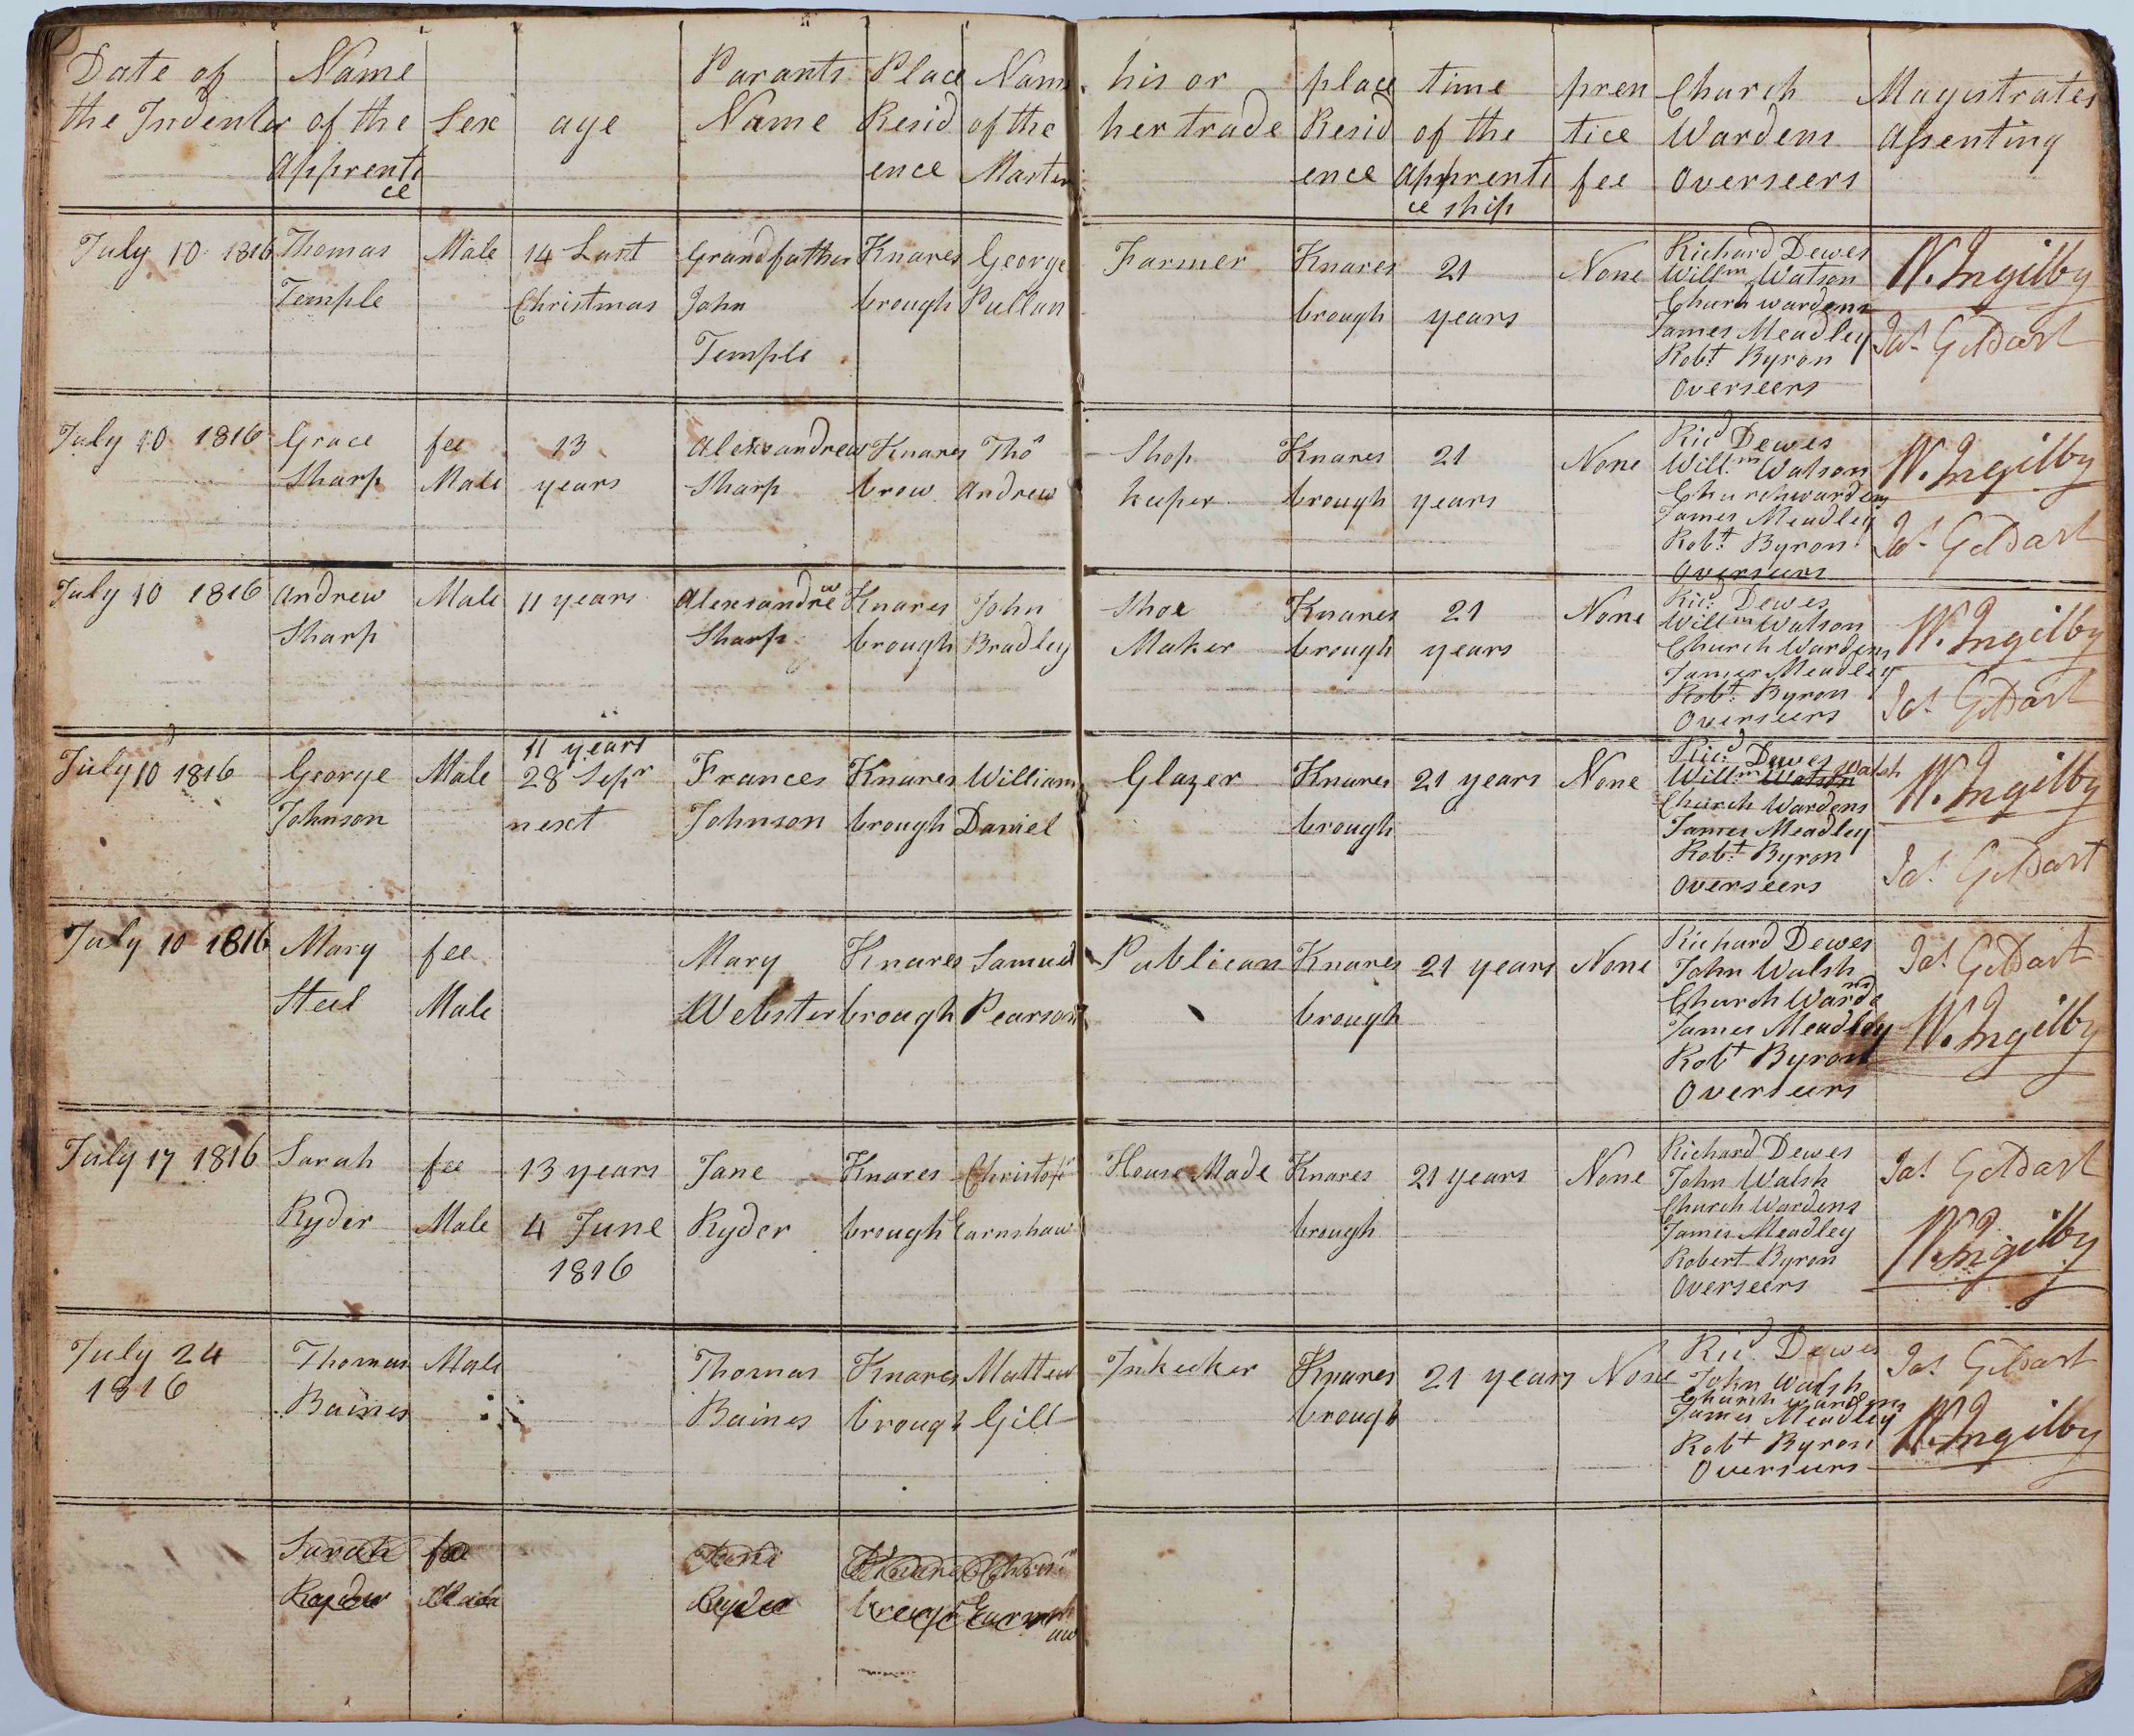 Date of Name Parants Place Name his or place time pren Church Magistrates
the Indenter of the Sex age Name Resid of the her trade Resid of the tice Wardens Assenting
Apprenti ence Master ence Apprenti fee Overseers
ce ce ship
July 10 1816 Thomas Male 14 Last Grandfather Knares George Farmer Knares 21 None Richard Dewes W. Ingilby
Temple Christmas John brough Pullan brough years Willm Watson
Church wardens
Temple James Meadley Jas Geldart
Robt Byron
Overseers
July 10 1816 Grace fee 13 Alexsandrew Knares Thos Shop Knares 21 None Ricd Dewes W. Ingilby
Sharp Male years Sharp brow Andrew keeper brough years Willm Watson
Churchwardens
James Meadley
Robt Byron Jas Geldart
Overseers
July 10 1816 Andrew Male 11 years Alexsandrew Knares John Shoe Knares 21 None Ricd Dewes W. Ingilby
Sharp Sharp brough Bradley Maker brough years Willm Watson
Church Wardens
James Meadley
Robt Byron Jas Geldart
Overseers
11 years
July 10 1816 George Male 28 Sepr Frances Knares William Glazer Knares 21 years None Ricd Dewes W. Ingilby
Willm Watson Walsh
Johnson next Johnson brough Daniel brough Church Wardens
James Meadley
Robt Byron Jas Geldart
Overseers
July 10 1816 Mary fee Mary Knares Samuel Publican Knares 21 years None Richard Dewes Jas Geldart
John Walsh
Steel Male Webster brough Pearson brough Church Wardens
James Meadley W. Ingilby
Robt Byron
Overseers
July 17 1816 Sarah fee 13 years Jane Knares Christor House Made Knares 21 years None Richard Dewes Jas Geldart
John Walsh
Ryder Male 4 June Ryder brough Earnshaw brough Church Wardens
1816 James Meadley W. Ingilby
Robert Byron
Overseers
July 24 Thomas Male Thomas Knares Mattew Inkeeker Knares 21 years None Ricd Dewes Jas Geldart
1816 John Walsh
Baines Baines brough Gill brough Church wardens
James Meadley W. Ingilby
Robt Byron
Overseers
Sarah fee Jane Knares
Ryder Male Ryder brough Earnsh
aw